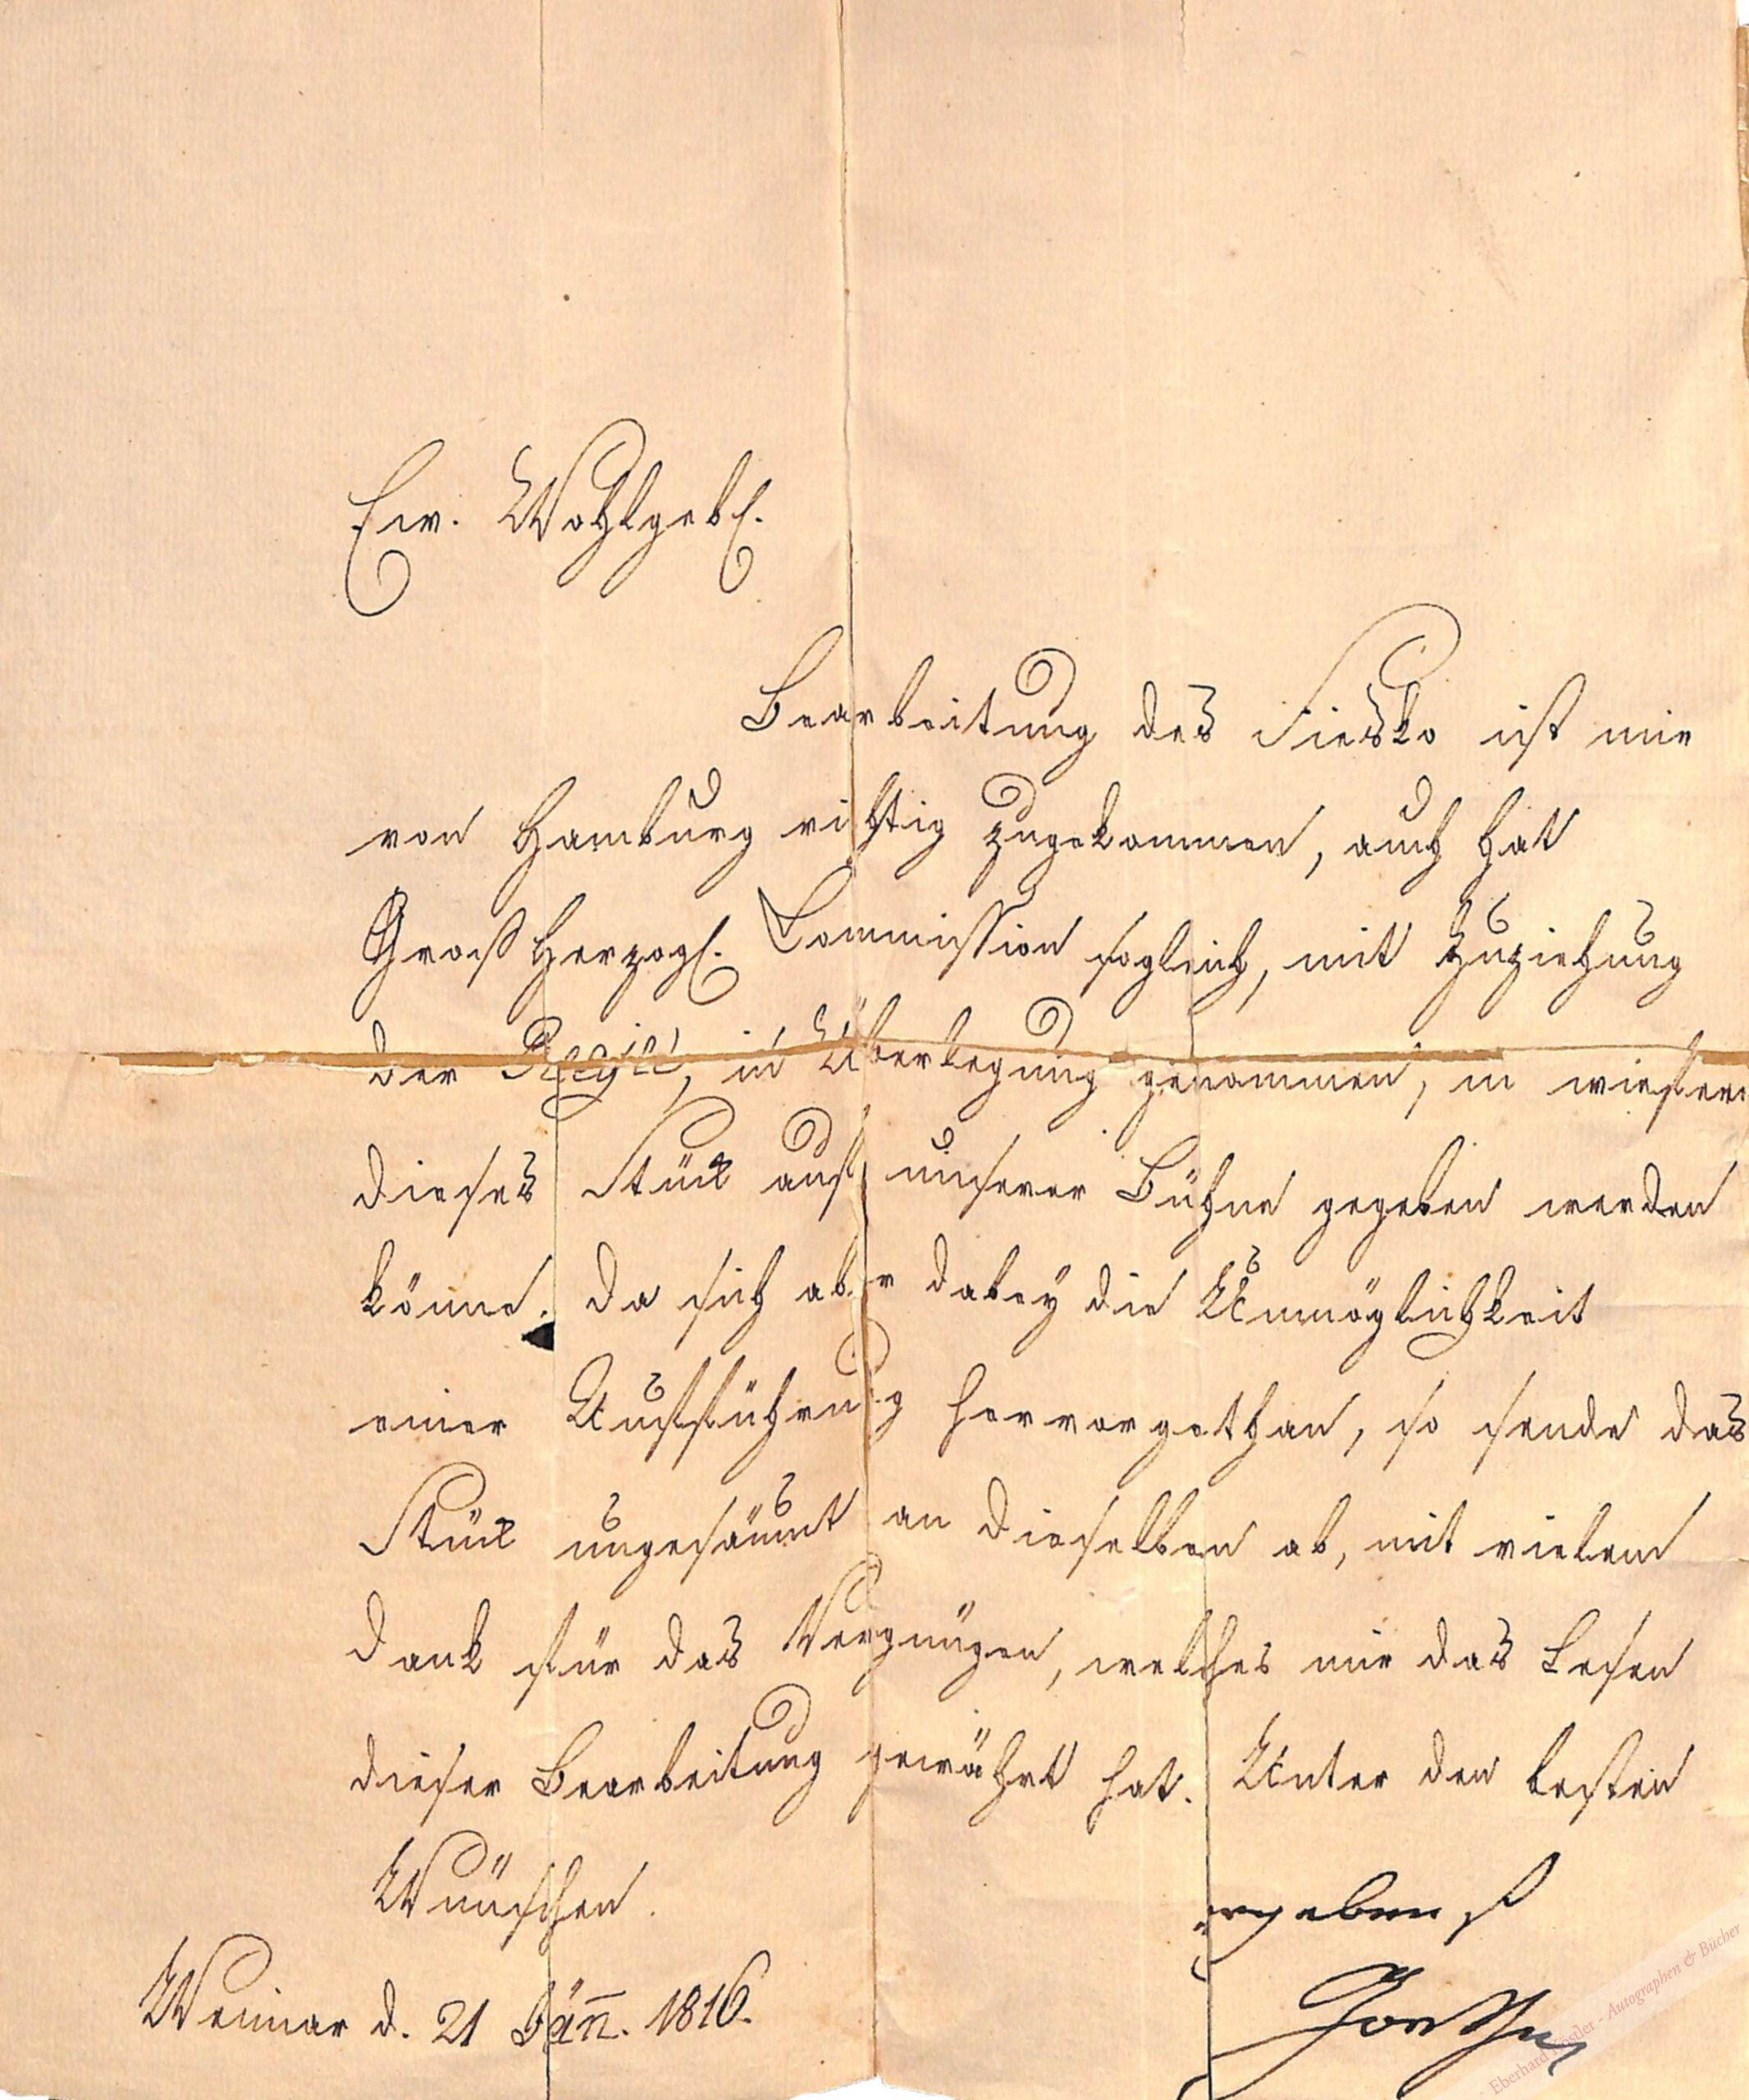 Ew. Wohlgeb.
Bearbeitung des Fiesko ist mir
von Hamburg richtig zugekommen, auch hat
Großherzogl. Commission sogleich, mit Zuziehung
der Regie, in Überlegung genommen, in wiefern
dieses Stück auf unserer Bühne gegeben werden
könne. Da sich aber dabey die Unmöglichkeit
einer Aufführung hervorgethan, so sende das
Stück ungesäumt an Dieselben ab, mit vielem
Dank für das Vergnügen, welches mir das Lesen
dieser Bearbeitung gewährt hat. Unter den besten
Wünschen.
ergebenst
Weimar d. 21 Jän̄. 1816.
Goethe
Eberhard Köstler - Autographen & Bücher